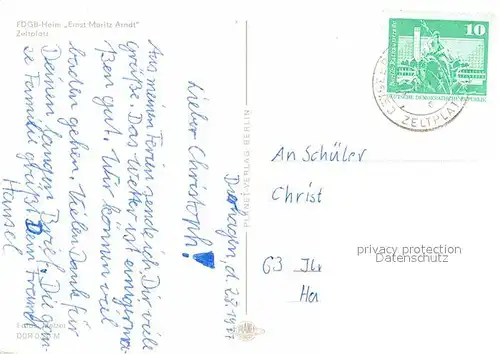 FDGB-Heim „Ernst Moritz Arndt“
Zeltplatz
10
DEUTSCHE DEMOKRATISCHE REPUBLIK
ZELTPLATZ
PLANET-VERLAG BERLIN
Dierhagen, d. 28.
Lieber Christoph!
Aus meinen Ferien sende ich Dir viele
Grüße. Das Wetter ist einigerma-
ßen gut. Wir können viel
baden gehen. Vielen Dank für
Deinen langen Brief. Die gan-
ze Familie grüßt Dein Freund
Hansel
An Schüler
Christ
63 Ilm
Ha
privacy protection
Datenschutz